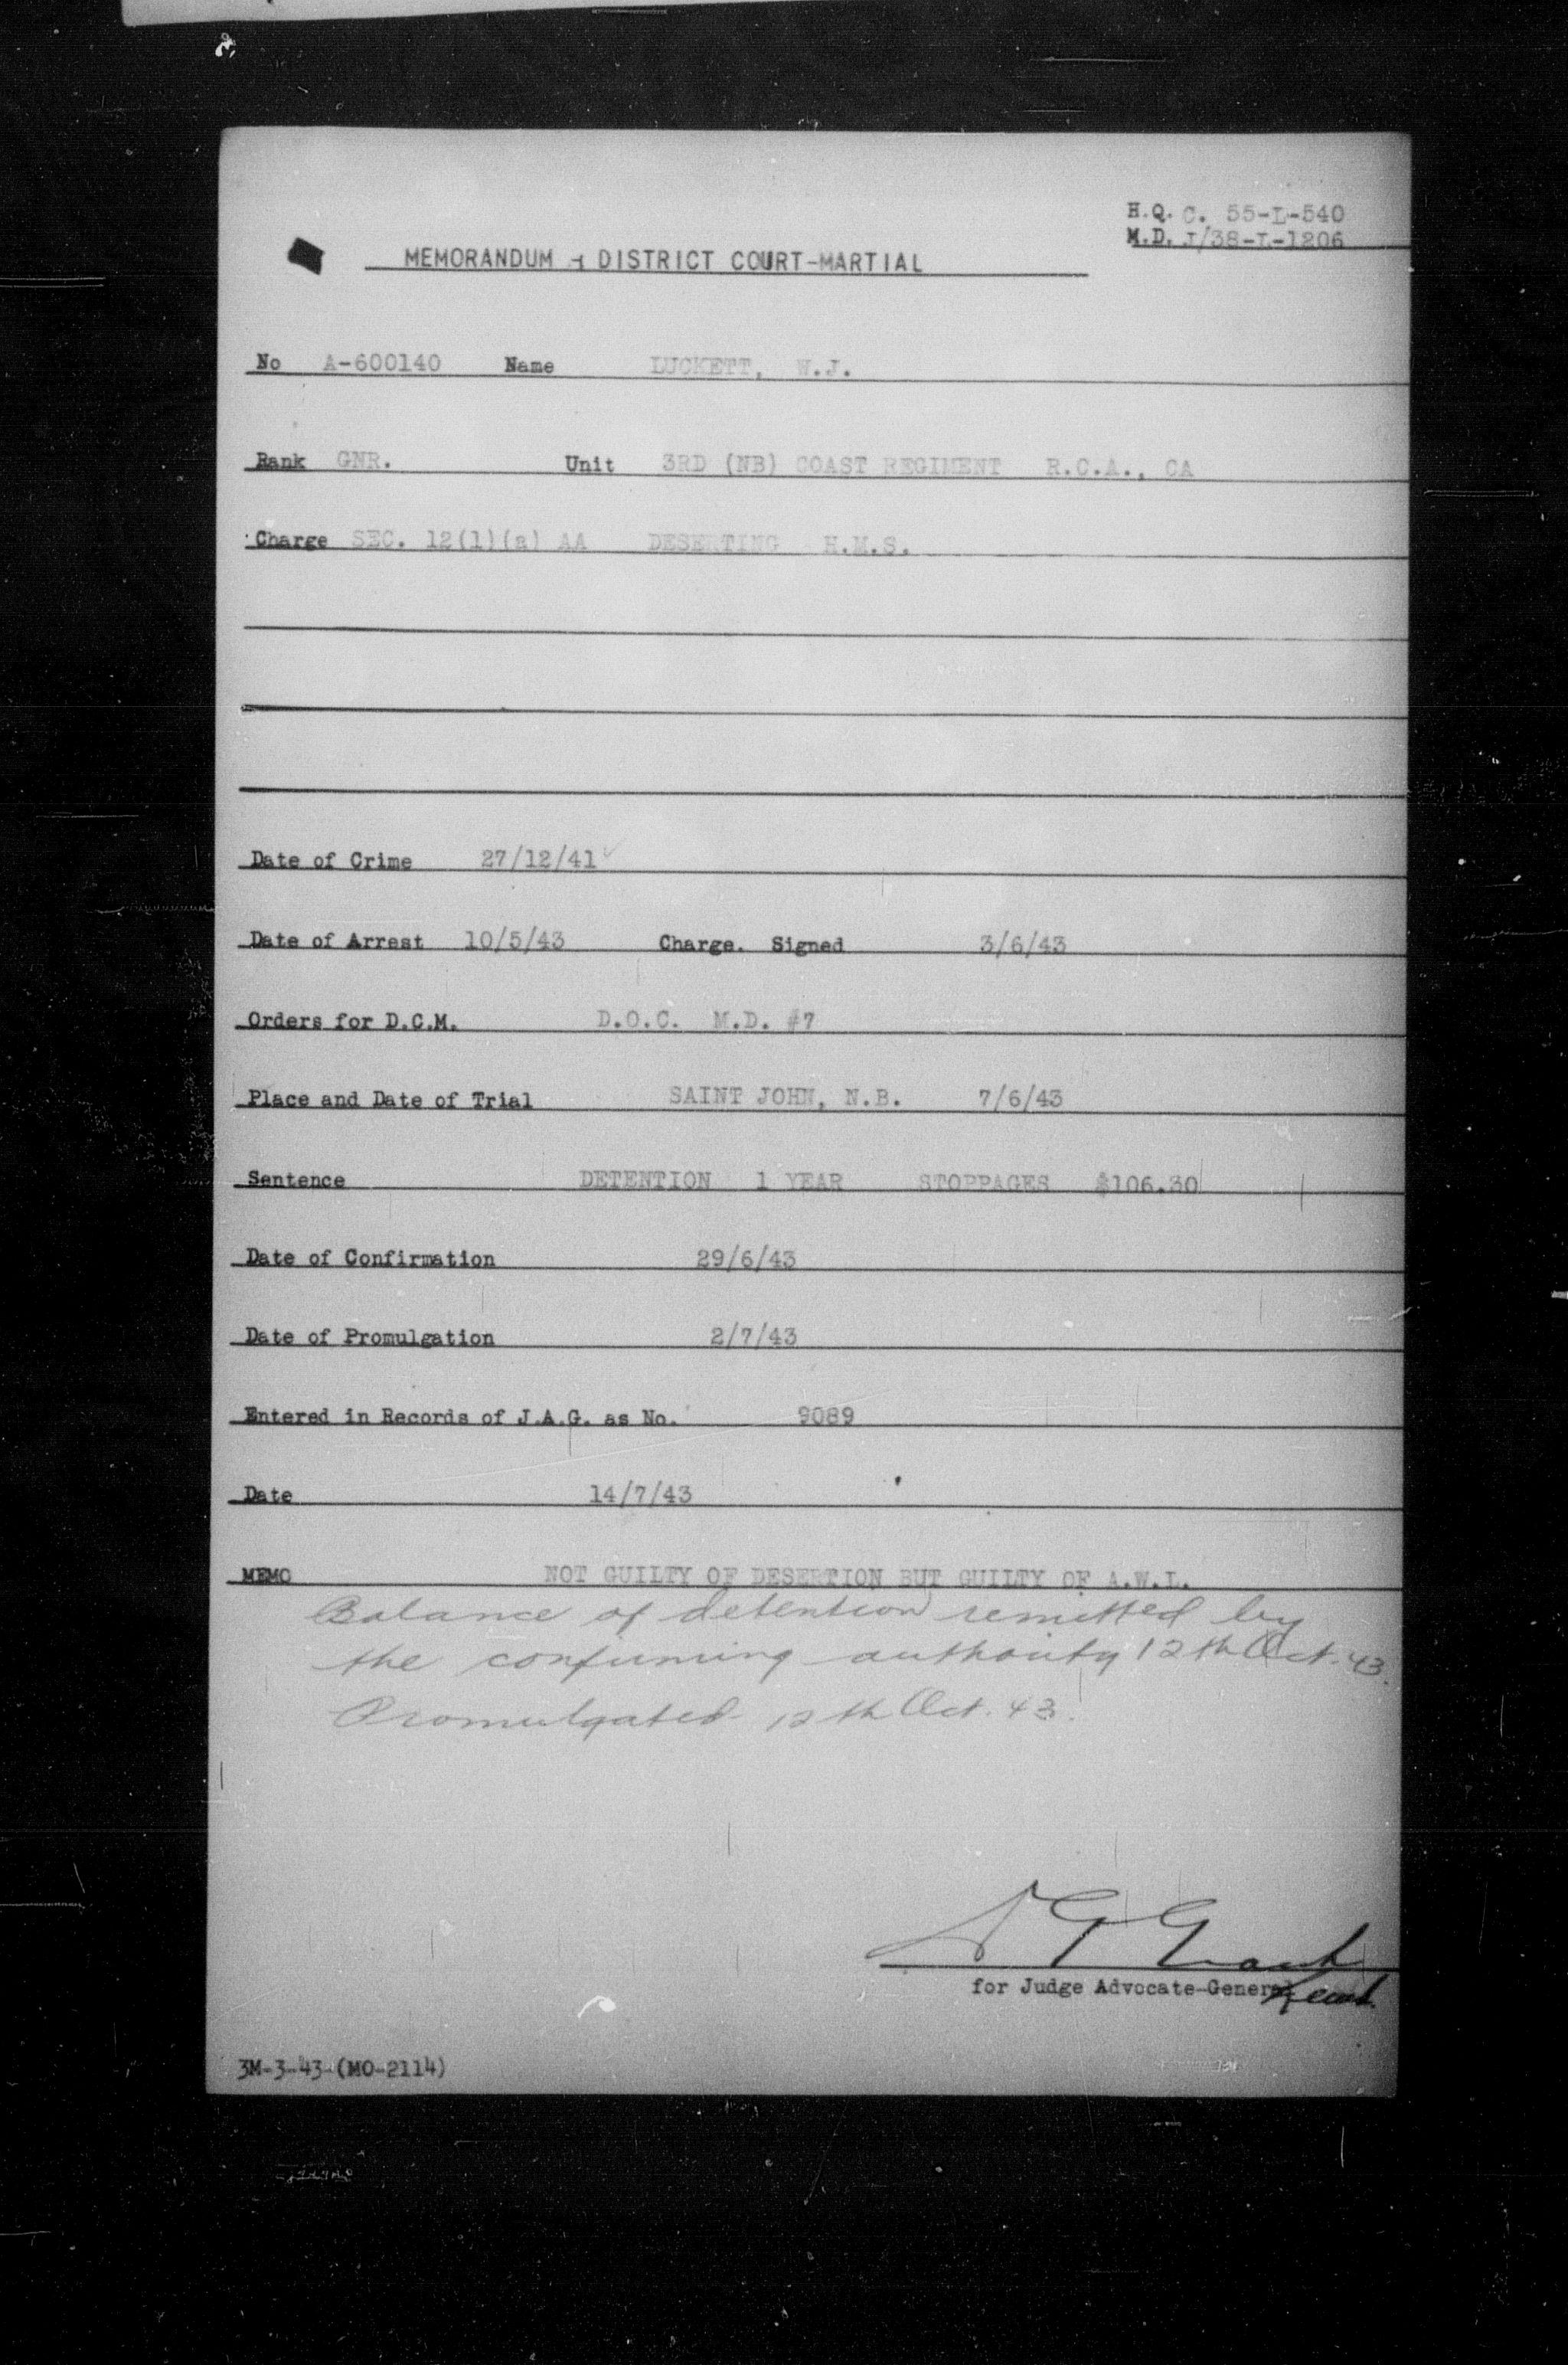 H.Q. C. 55-L-540
M.D. J/38-L-1206
MEMORANDUM - DISTRICT COURT-MARTIAL
No A-600140 Name LUCKETT, W.J.
Rank GNR. Unit 3RD (NB) COAST REGIMENT R.C.A., CA
Charge SEC. 12(1)(a) AA DESERTING H.M.S.
Date of Crime 27/12/41
Date of Arrest 10/5/43 Charge. Signed 3/6/43
Orders for D.C.M. D.O.C. M.D. #7
Place and Date of Trial SAINT JOHN, N.B. 7/6/43
Sentence DETENTION 1 YEAR STOPPAGES $106.30
Date of Confirmation 29/6/43
Date of Promulgation 2/7/43
Entered in Records of J.A.G. as No. 9089
Date 14/7/43
MEMO NOT GUILTY OF DESERTION BUT GUILTY OF A.W.L.
Balance of detention remitted by
the confirming authority 12th Oct. 43.
Promulgated 12th Oct. 43.
Grant
for Judge Advocate-General
3M-3-43-(MO-2114)